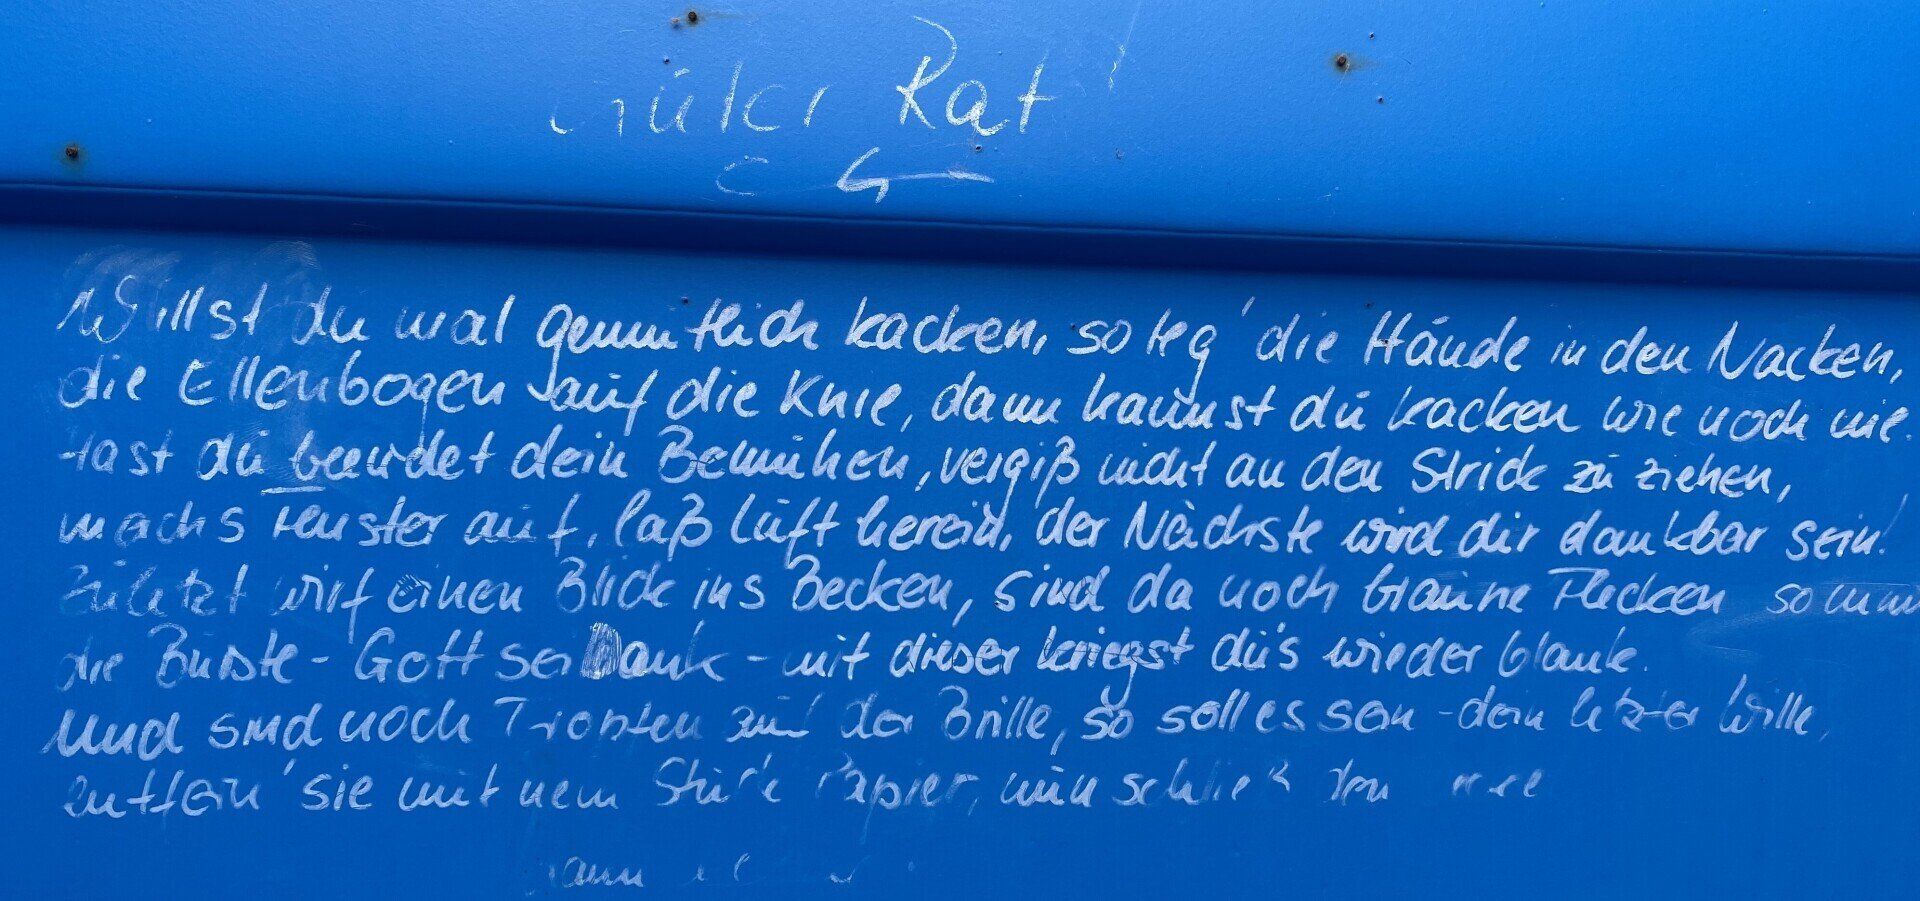 Guter Rat!
Willst du mal gemütlich kacken, so leg' die Hände in den Nacken,
die Ellenbogen auf die Knie, dann kannst du kacken wie noch nie.
Hast du beendet dein Bemühen, vergiß nicht an den Strick zu ziehen,
machs Fenster auf, laß Luft herein, der Nächste wird dir dankbar sein!
Zuletzt wirf einen Blick ins Becken, sind da noch braune Flecken so nimm
die Bürste - Gott sei Dank - mit dieser kriegst du's wieder blank.
Und sind noch Tropfen auf der Brille, so soll es sein - dein letzter Wille,
entfern' sie mit nem Stück Papier, nun schließ den
dann